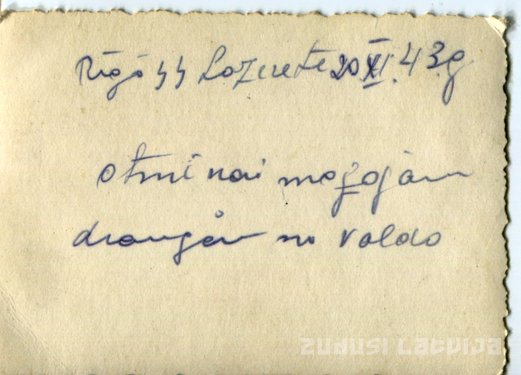 Rīgā SS Lazaretē 20 XI. 43.g
Atmiņai mazajam
draugam no Valda
ZUDUSI LATVIJA